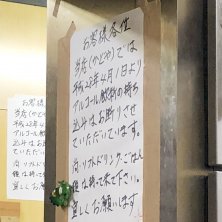 お客様各位
当店(やどや)では
平成28年4月1日より
アルコール飲料の持ち
込みはお断りさせ
ていただいています。
尚、ソフトドリンク、ごはん
類は持って来て下さい。
宜しくお願いします
お客様
当店(や
平成28年
アルコール
込みはお
ていただ
尚、ソフトド
類は持
宜しくお